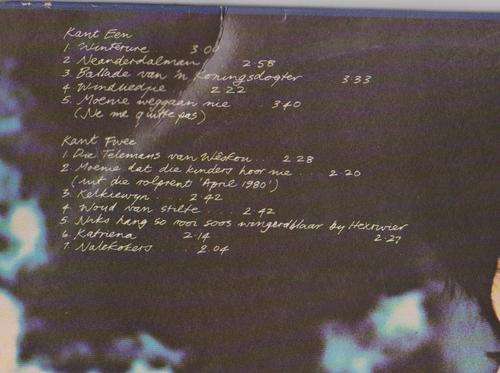 Kant Een
1. Winterure 3 00
2 Neanderdalman 2 58
3 Ballade van 'n Koningsdogter 3 33
4 Winduedjie 2 22
5. Moenie weggaan nie 3 40
(Ne me quitte pas)
Kant Twee
1. Die Telemans van Weskou 2 28
2 Moenie dat die kinders hoor nie 2 20
(uit die rolprent 'April 1980')
3 Kelkiewyn 2 42
4 Woud van stilte 2 42
5 Niks hang so rooi soos wingerdblaar by Hexrivier 2 27
6 Katriena 2 14
7 Nalekokers 2 04